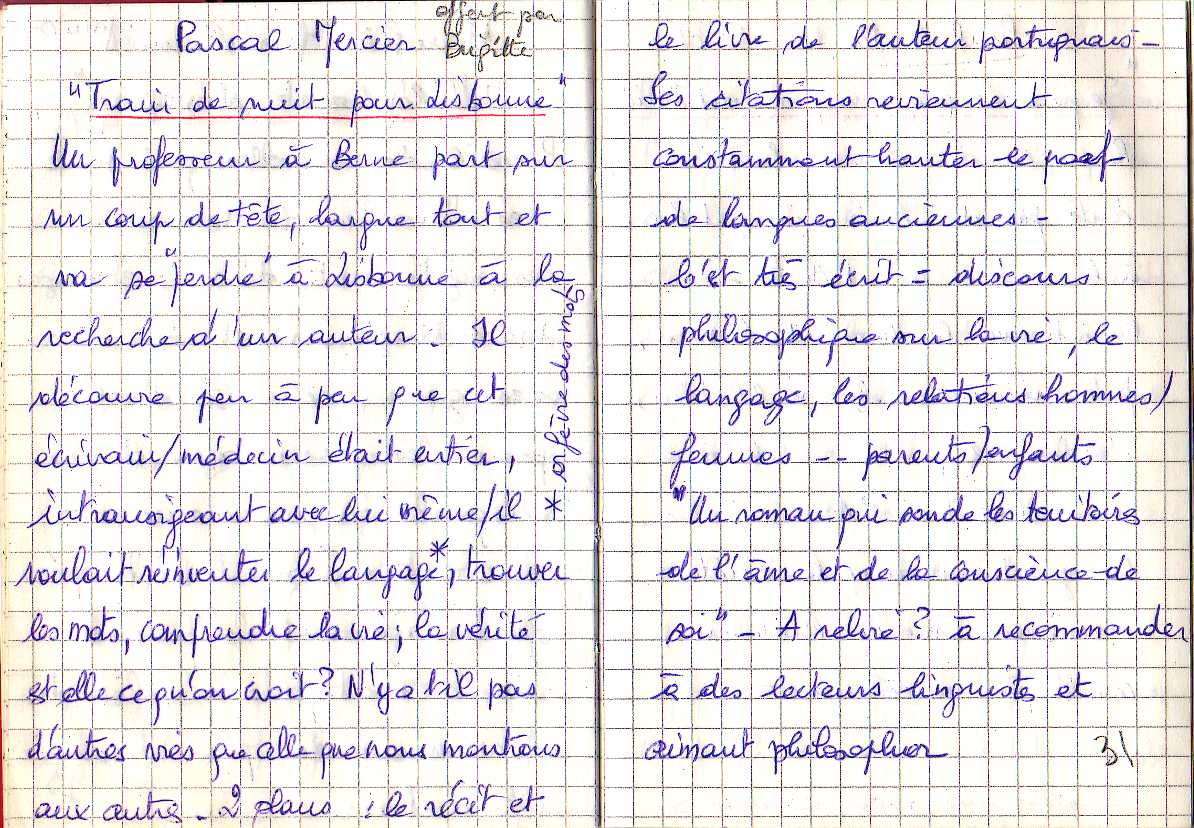 Pascal Mercier
offert par
Brigitte
"Train de nuit pour Lisbonne"
Un professeur à Berne part sur
un coup de tête, largue tout et
va se "perdre" à Lisbonne à la
recherche d'un auteur. Il
découvre peu à peu que cet
écrivain/médecin était entier,
intransigeant avec lui même/il
voulait réinventer le langage*, trouver
les mots, comprendre la vie; la vérité
est elle ce qu'on croit? N'y a t il pas
d'autres vies que celle que nous montrons
aux autres. 2 plans : le récit et
* orfèvre des mots
le livre de l'auteur portugais -
Ses citations reviennent
constamment hanter le prof
de langues anciennes -
C'est très écrit = discours
philosophique sur la vie, le
langage, les relations hommes/
femmes -- parents/enfants
"Un roman qui sonde les territoires
de l'âme et de la conscience de
soi" - A relire? à recommander
à des lecteurs linguistes et
aimant philosopher
31